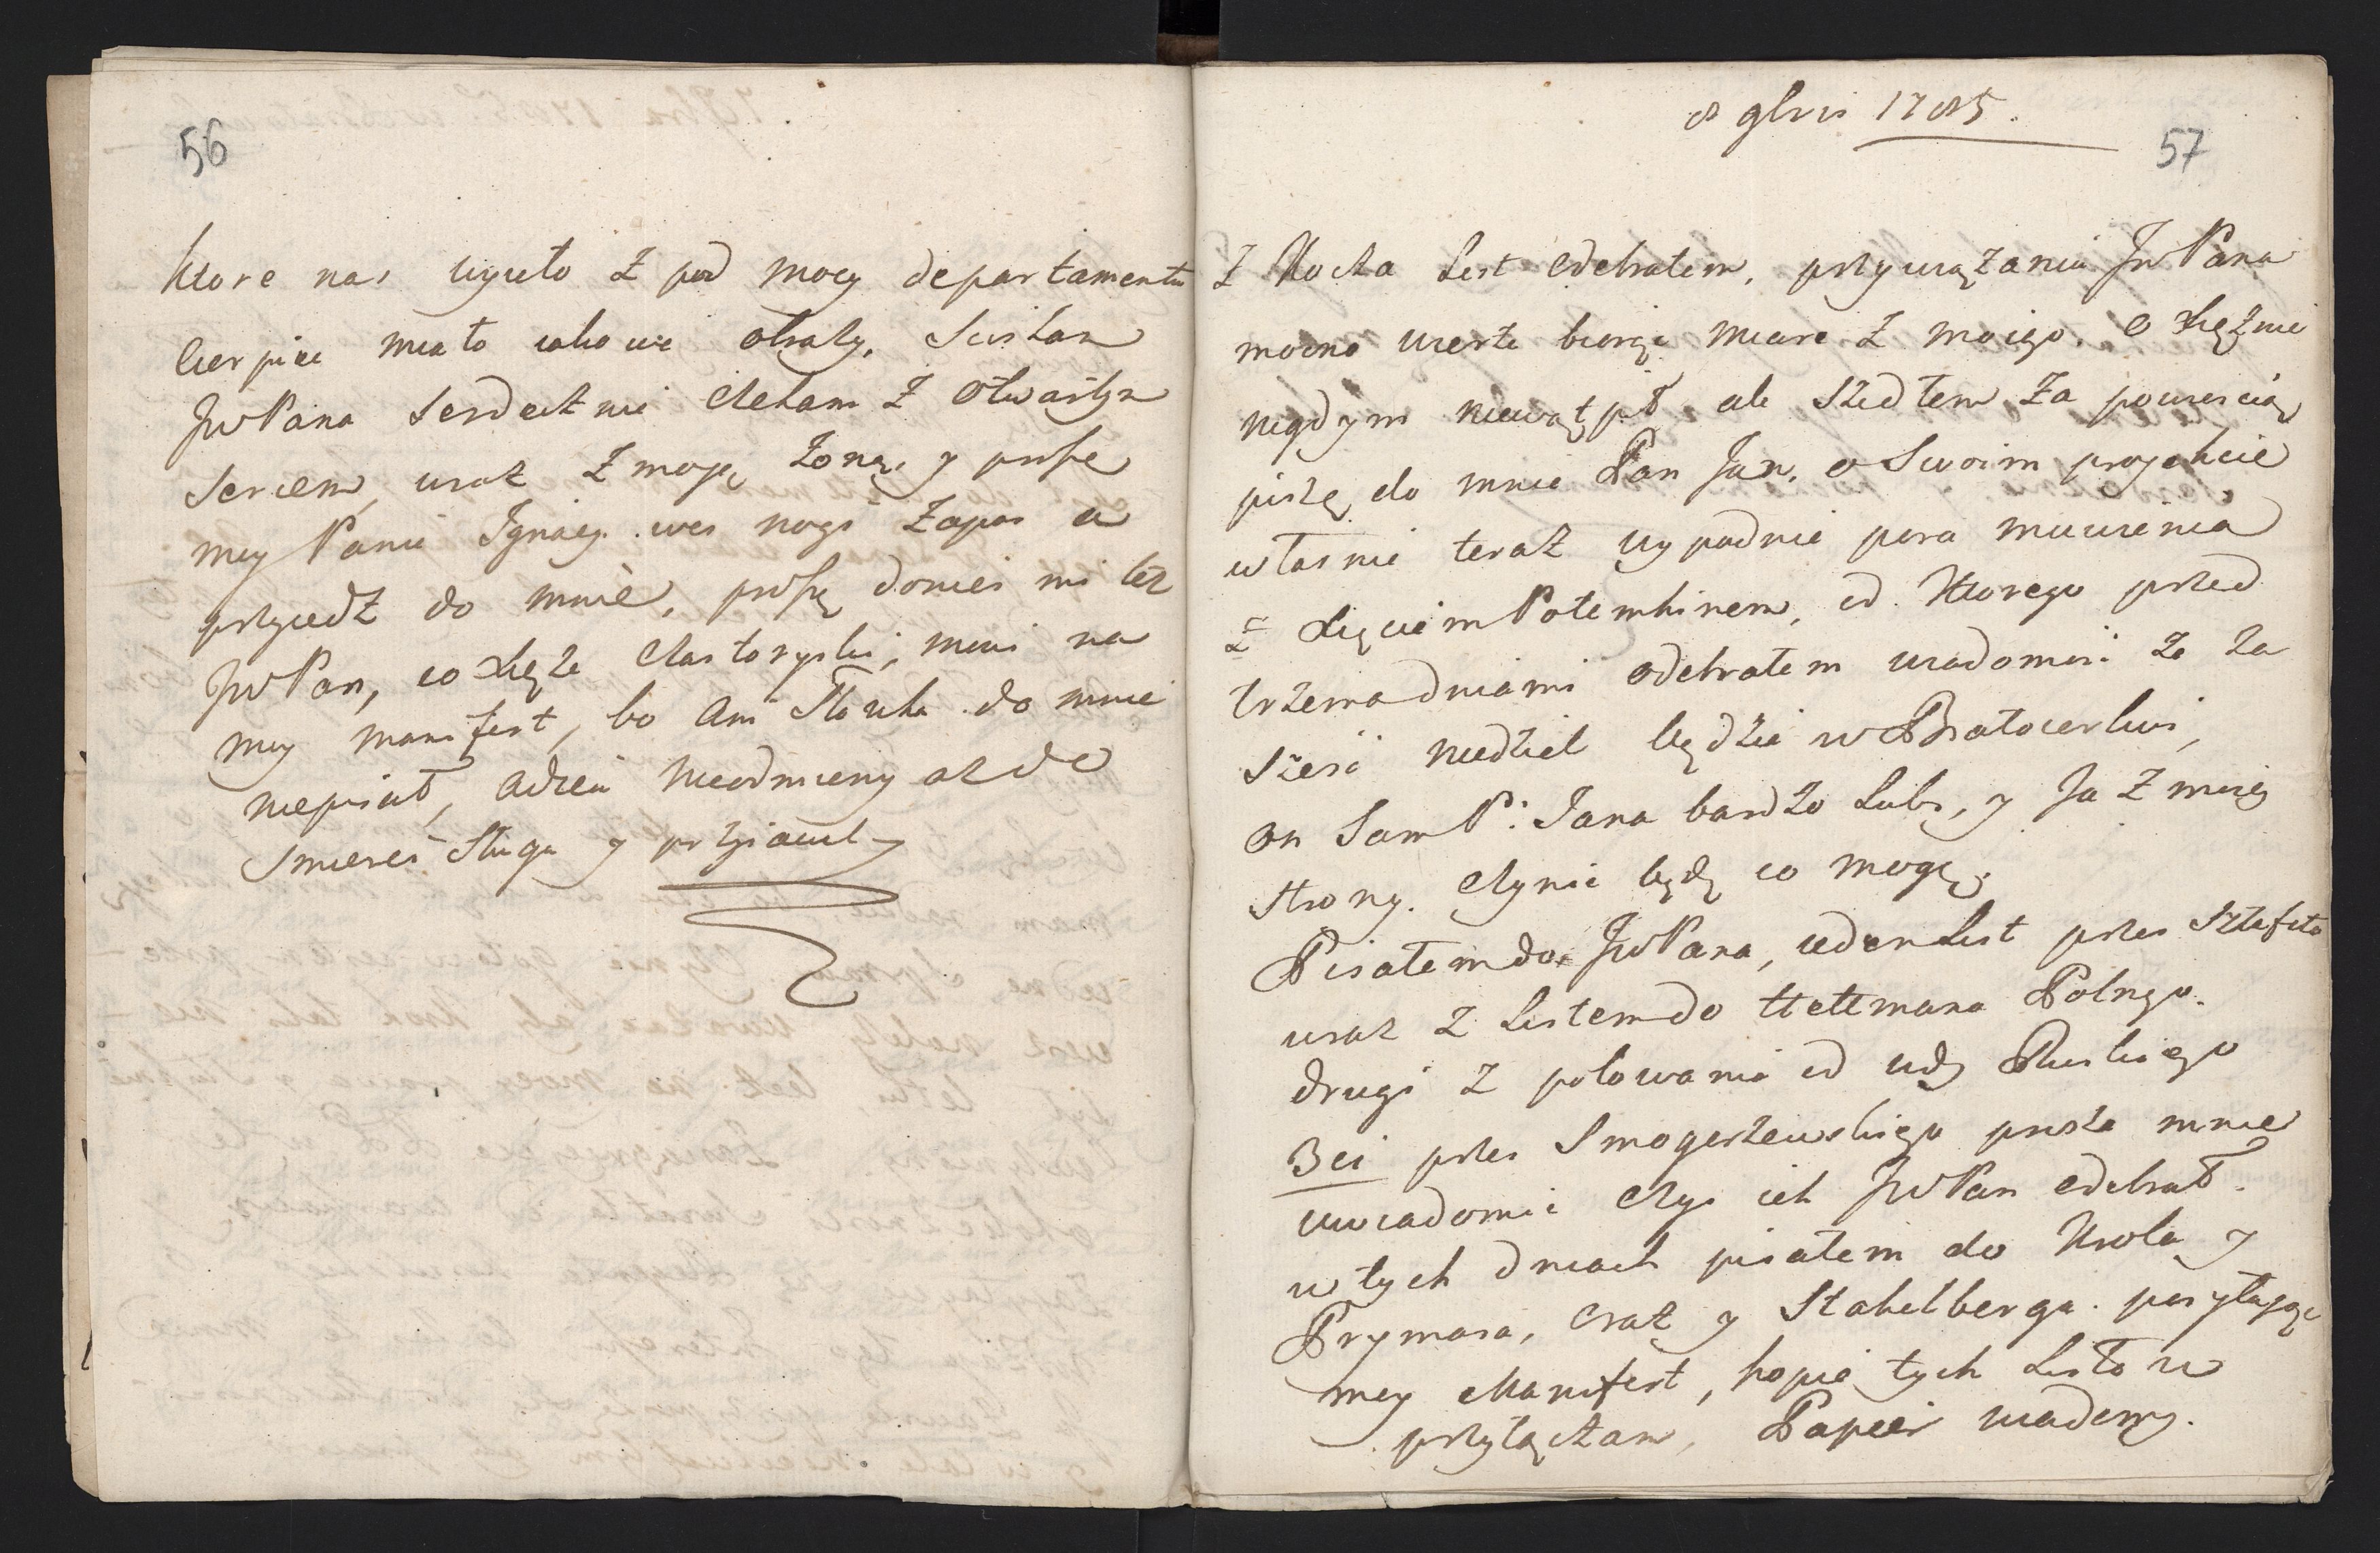 56
ktore nas wyieło z pod mocy departamentu
cierpiec miało iakowe obrazy. Sciskam
JwPana serdecznie czekam z otwartym
sercem, wraz z moją żoną, y prosze
mey Panie Ignacy. wes nogi zapas a
przyiedz do mnie, proszę donieś mi też
JwPan, co Xiąże Czartoryski, mowi na
moy manifest, bo ani słowka do mnie
niepisał, adieu nieodmieny az do
smierci sługa y przyiaciel
8 9bris 1785.
57
Z Kocka List odebrałem, przywiązania JwPana
mocno wierze biorąc miare z moiego. O Xięźnie
nigdym niewątpił ale szedłem za powiescią
piszę do mnie Pan Jan, o Swoim projekcie
własnie teraz wypadnie pora mowienia
z Xięciem Potemkinem, od ktorego przed
trzema dniami odebrałem wiadomość że za
sześć niedziel będzie w Białocerkwi,
on Sam P: Jana bardzo Lubi, y Ja z moiey
strony. czynic będę co mogę.
Pisałem do JwPana, ieden List przez Sztafete
wraz z Listem do Hetmana Polnego.
drugi z polowania od Ruskiego
3ci przez Smogorzewskiego prosze mnie
uwiadomić czyś ich JwPan odebrał.
w tych dniach pisałem do Krola y
Prymasa, oraz y Stakelberga. posyłając
moy Manifest, kopie tych Listow
przyłączam, Papier wiadomy.